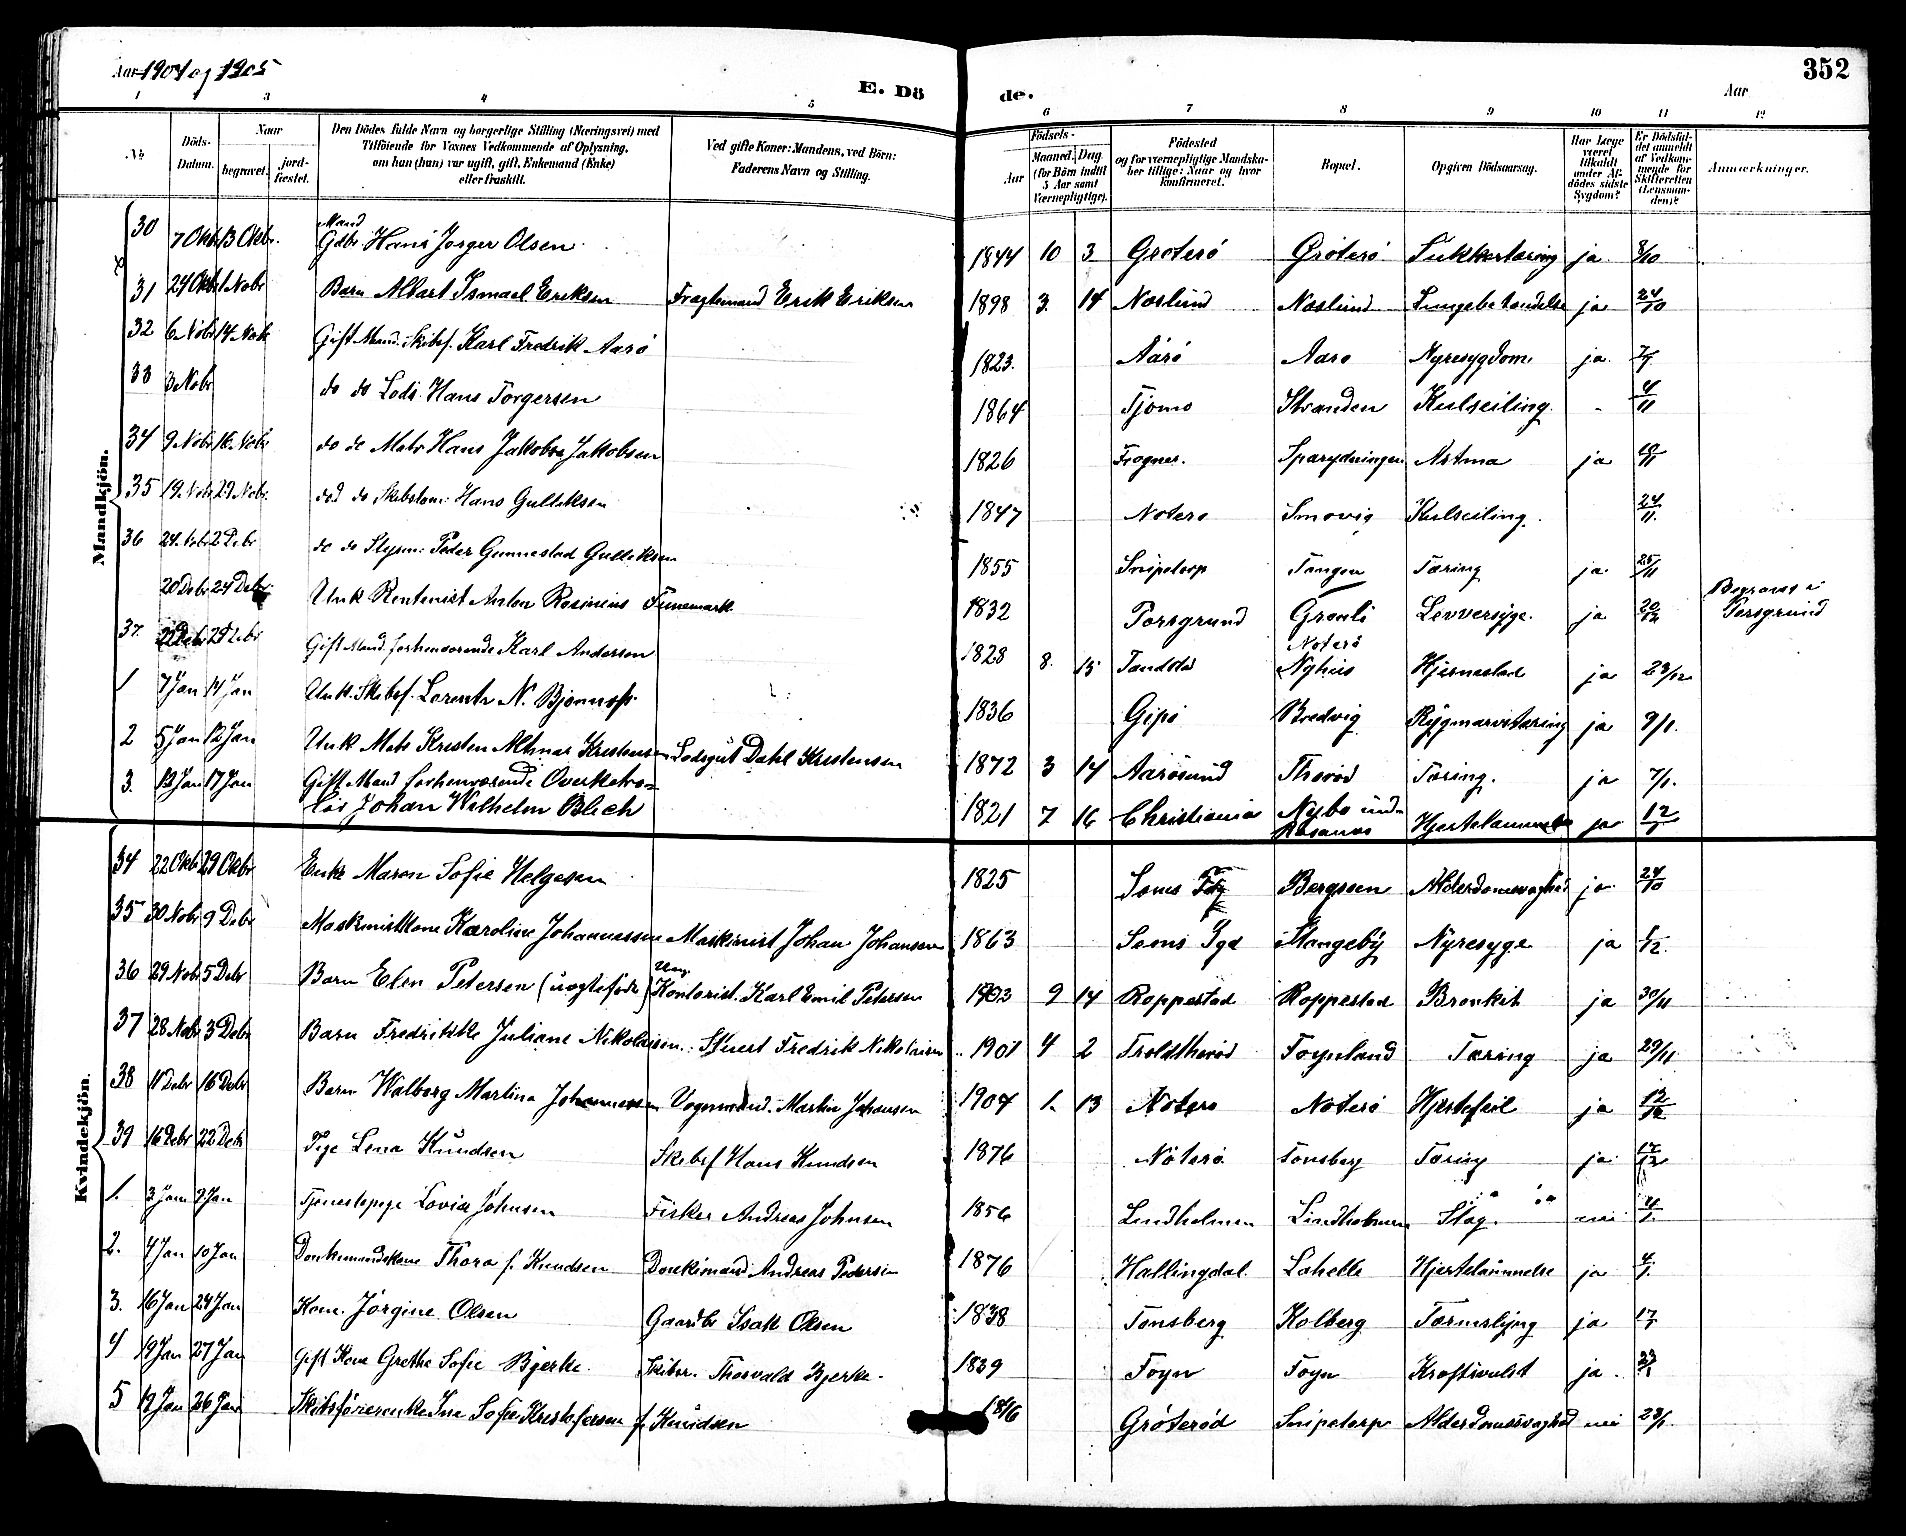 Aar 1904 og 1905
E. Dö de.
Aar
352
1 2 3 4 5 6 7 8 9 10 11 12
No
Döds-Datum.
Naar begravet. jordfæstet.
Den Dödes fulde Navn og borgerlige Stilling (Næringsvei) med Tilföiende for Voxnes Vedkommende af Oplysning, om han (hun) var ugift, gift, Enkemand (Enke) eller fraskilt.
Ved gifte Koner: Mandens, ved Börn: Faderens Navn og Stilling.
Födsels-
Aar
Maaned. Dag (for Börn indtil 5 Aar samt Værnepligtige).
Födested og for værnepligtige Mandskaber tillige: Naar og hvor konfirmeret.
Bopæl.
Opgiven Dödsaarsag.
Har Læge været tilkaldt under Afdödes sidste Sygdom?
Er Dödsfaldet anmeldt af Vedkommende for Skifteretten (Lensmanden)?
Anmærkninger.
Mandkjön.
30 7 Okbr 13 Okbr. Mand Gdbr Hans Jørger Olsen 1844 10 3 Grøterø Grøterø Sukkertæring ja 8/10
31 24 Okbr 1 Nobr Barn Albart Ismael Eriksen Fragtemand Erik Eriksen 1898 3. 14 Næslund Næslund Lungebetændelse ja 24/10
32 6 Nobr 14 Nobr Gift Mand. Skibsf. Karl Fredrik Aarø 1823. Aarø Aarø Nyresygdom ja
33 3 Nobr do do Lods. Hans Torgersen 1864 Tjømø Stranden Kulseiling - 4/11
34 9 Nobr 16 Nobr do do Matr Hans Jakobs Jakobsen 1826 Frogner. Astma ja
35 19. Nobr 29 Nobr. do do Skibstøm. Hans Gulliksen 1847 Nøterø Smøvig Kulseiling. 24/11.
36 24. Nobr 2 Debr do do Styrm: Peder Gunnestad Gulliksen 1855 Snipetorp Tangen Tæring ja 25/11
20 Debr 24 Debr Unk Rentenist Anton Rasmus Funnemark 1832 Porsgrund Grønli Levversyge ja 20/12 Begravet i Porsgrund
37. 22 Debr 29 Debr Gift Mand. forhenværende Karl Andersen 1828 8. 15 Nøterø Nyhus Hjerneslad ja 23/12
1 7 Jan 14 Jan Unk. Skibsf. Lorentz N. Bjønness 1836 Gipø Bredvig Rygmarvstæring ja 9/1.
2 5 Jan 12 Jan Unk Mats Kristen Altmar Kristensen Lodsgut Dahl Kristensen 1872 3 14 Aarøsund Thorød Tæring. ja 7/1.
3. 13 Jan 17 Jan Gift Mand forhenværende Overkelner Johan Wilhelm Blich 1821 7 16 Christiania Nybo ind Rosanes Hjertelammelse ja 12/1
Kvindekjön.
34 22 Okbr 29 Okbr Enke Maren Sofie Helgesen 1825 Sems Bergseen Alderdomssvaghed ja 24/10
35 30 Nobr 9 Debr Maskinistkone Karoline Johannessen Maskinist Johan Johansen 1863 Sems Pgd Stangeby Nyresyge ja 1/12.
36 29 Nobr 5 Debr Barn Elen Petersen (uægtefødt) Ung. Kontorist. Karl Emil Petersen 1903 9 14 Roppestad Roppestad Bronkit ja 30/11
37 28 Nobr 3 Debr Barn Fredrikke Juliane Nikolaisen. Stuert Fredrik Nikolaisen 1901 4 2 Troldtherød Føynland Tæring ja 29/11
38 11 Debr 16 Debr Barn Walborg Martina Johannessen Vognmand. Martin Johansen 1904 1. 13 Nøterø Nøterø Hjertefeil ja 12/12
39 16 Debr 22 Debr Pige Lena Knudsen Skibsf Hans Knudsen 1876 Nøterø Tønsberg Tæring ja 17/12
1. 3 Jan 9 Jan Tjenestepige Lovise Johnsen Fisker Andreas Johnsen 1856 Lindholmen Lindholmen Slag. nei 4/1.
2. 4 Jan 10 Jan Donkemandskone Thora f. Knudsen Donkimand Andreas Pedersen 1876 Hallingdal. Lahelle Hjertelammelse ja 4/1.
3. 16 Jan 24 Jan Kone. Jørgine Olsen Gaardbr Isak Olsen 1838 Tønsberg Kolberg Tarmslyng ja 17/1
4 19 Jan 27 Jan Gift Kone Grethe Sofie Bjerke. Skibsr. Thorvald Bjerke. 1839 Føyn Føyn Kræftsvulst ja.
5 19 Jan 26 Jan Skibsførerenke Ine Sofie Kristofersen f. Knudsen 1816 Grøterød Snipetorp Alderdomssvaghed nei 23/1.